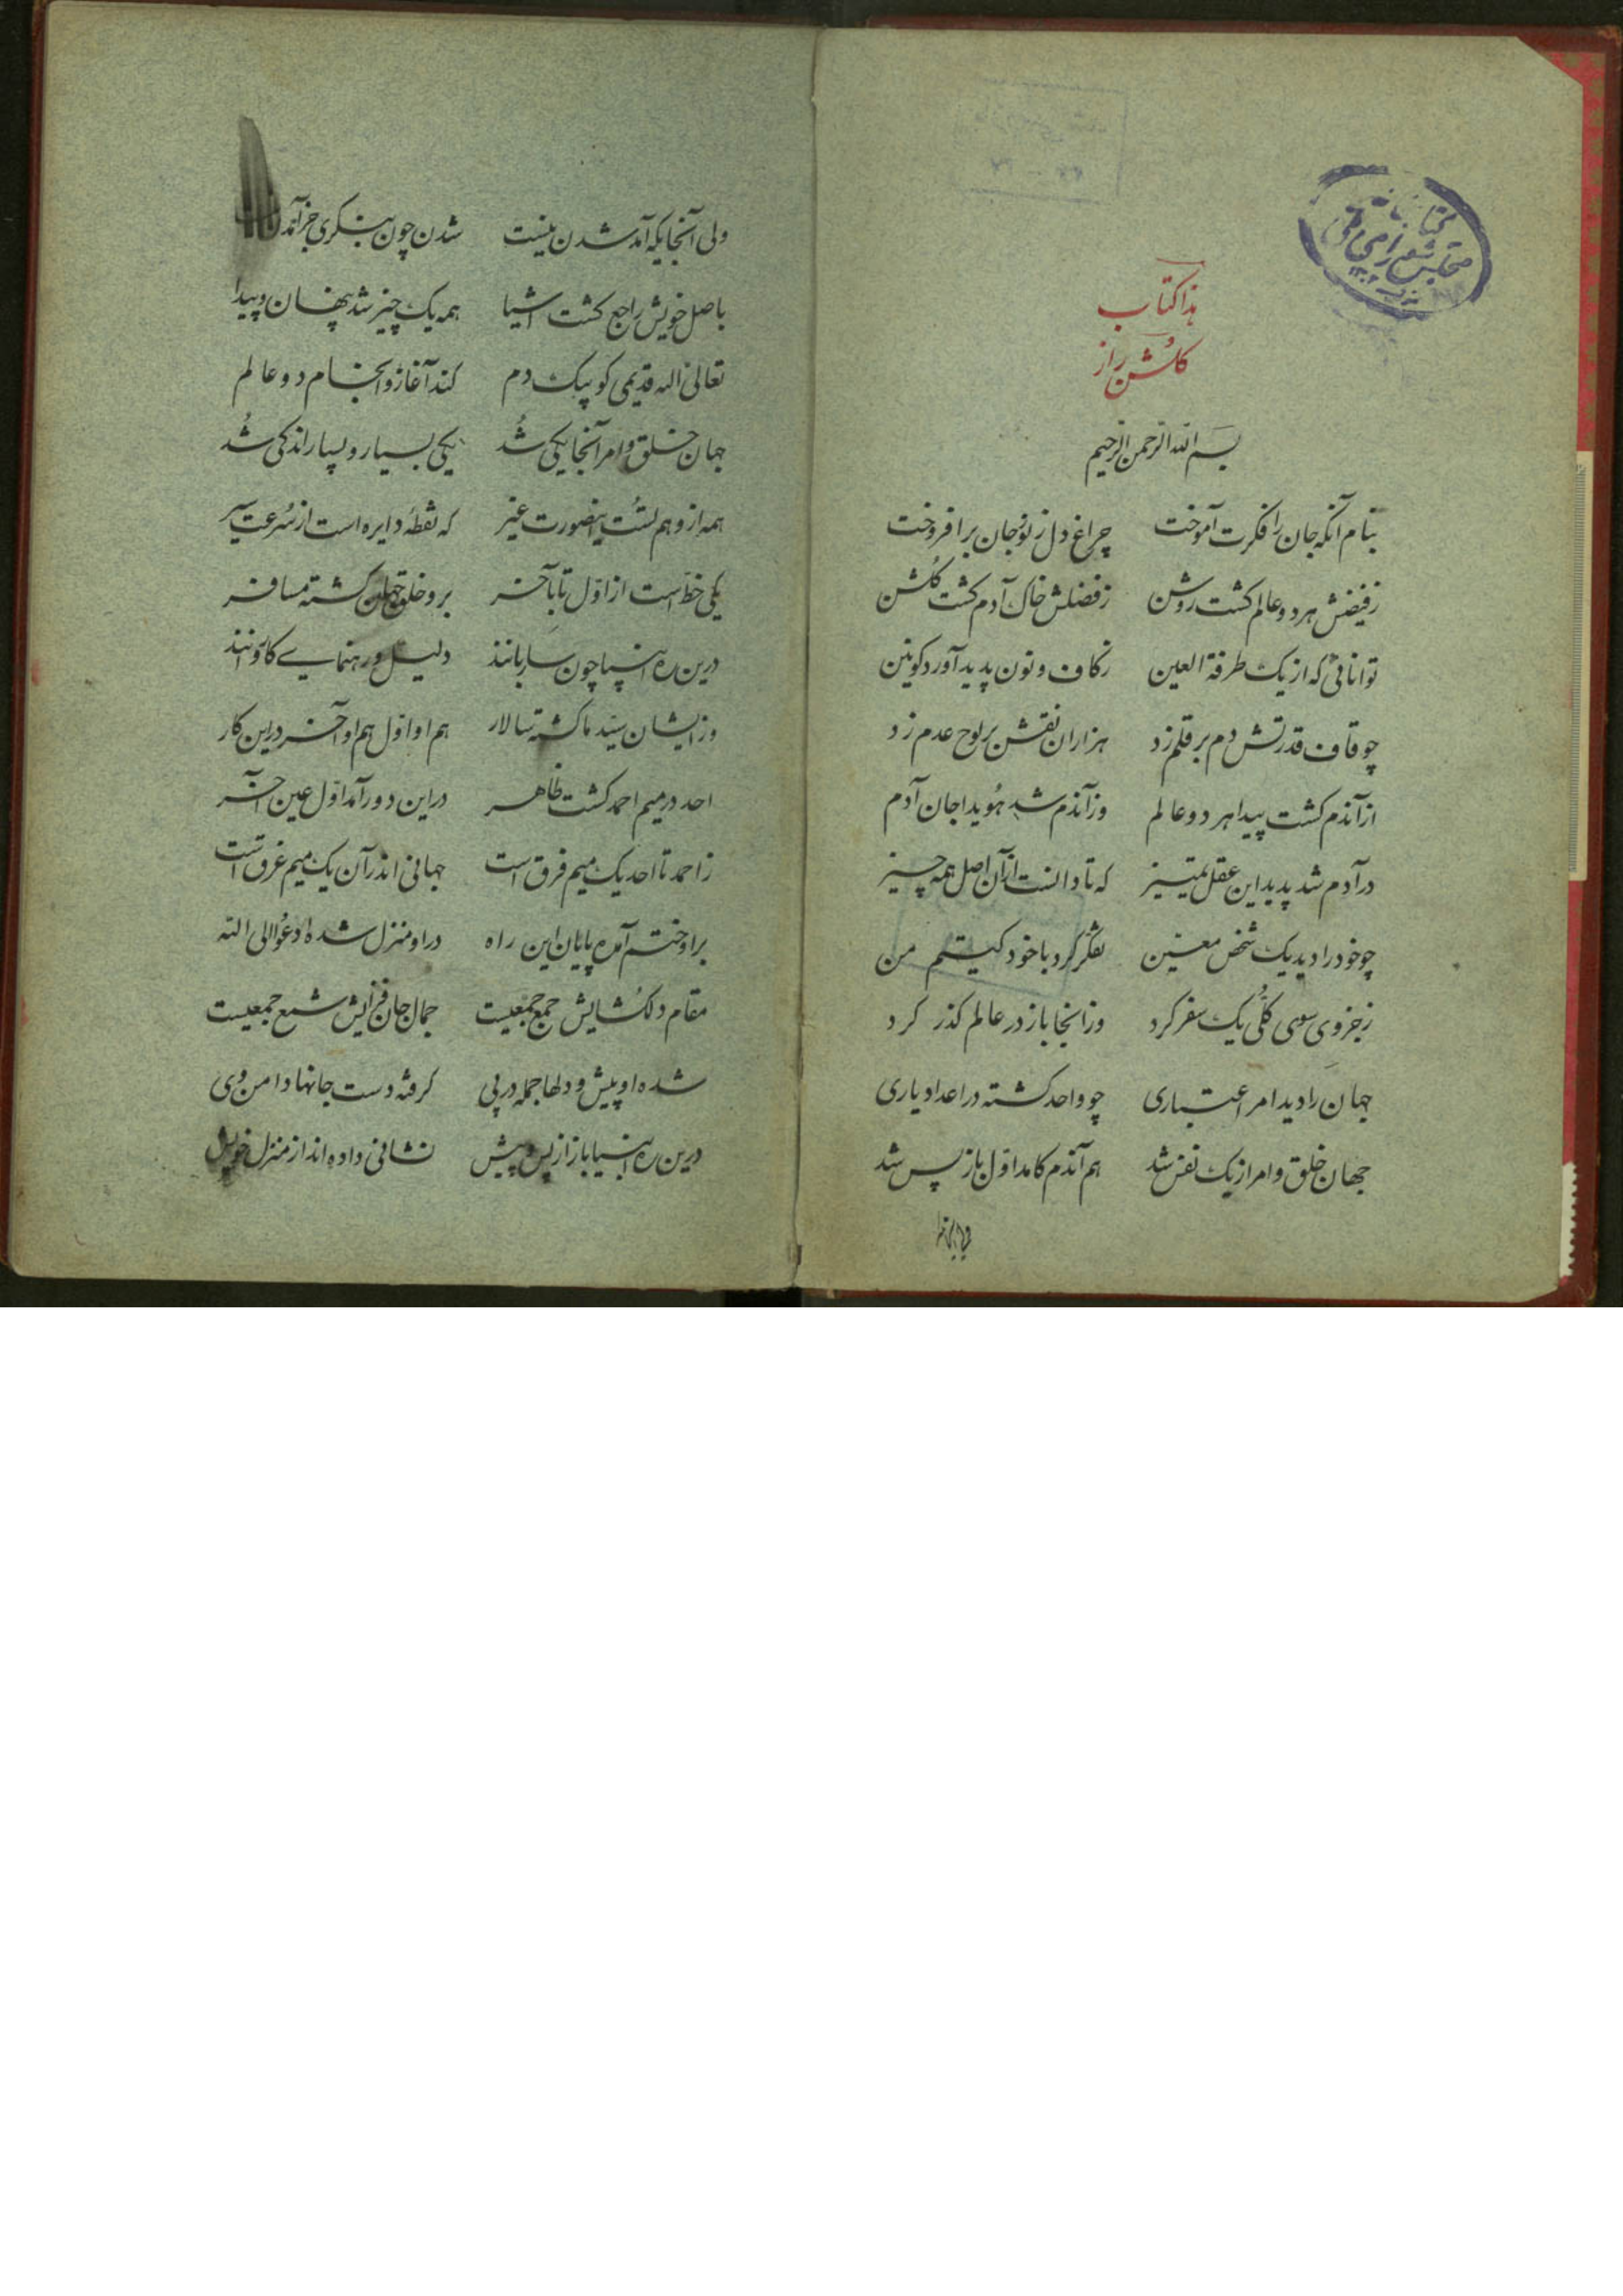 کتابخانه
مجلس شورای ملی
هذا کتاب
گلشن راز
بسم الله الرحمن الرحیم
بنام آنکه جان را فکرت آموخت چراغ دل ز نور جان برافروخت
ز فیضش هر دو عالم کشت روشن ز فضلش خاک آدم کشت کلشن
توانائی که از یک طرفة العین ز کاف و نون پدید آورد کونین
چو قاف قدرتش دم بر قلم زد هزاران نقش بر لوح عدم زد
از آندم کشت پیدا هر دو عالم وز آندم شد هویدا جان آدم
در آدم شد پدید این عقل تمییز که تا دانست از آن اصل همه چیز
چو خود را دید یک شخص معین تفکر کرد با خود کیستم من
ز جزوی سوی کلی یک سفر کرد وز انجا باز در عالم کذر کرد
جهان را دید امر اعتباری چو واحد کشته در اعداد یاری
جهان خلق و امر از یک نفس شد هم آندم کامد اول باز پس شد
ولی آنجایکه آمد شدن نیست شدن چون بنکری جز آمدن
باصل خویش راجع کشت اشیا همه یک چیز شد پنهان و پیدا
تعالی الله قدیمی کو بیک دم کند آغاز و انجام دو عالم
جهان خلق و امر آنجا یکی شد یکی بسیار و بسیار اندکی شد
همه از وهم تست اینصورت غیر که نقطه دایره است از سرعت سیر
یکی خط است از اول تا بآخر برو خلق جهان کشته مسافر
درین ره انبیا چون ساربانند دلیل و رهنمای کاروانند
وز ایشان سید ما کشته سالار هم او اول هم او آخر در این کار
احد در میم احمد کشت ظاهر در این دور آمد اول عین آخر
ز احمد تا احد یک میم فرق است جهانی اندر آن یک میم غرق است
بر او ختم آمده پایان این راه در او منزل شده ادعوا الی الله
مقام دلکشایش جمع جمعیست جمال جان فزایش شمع جمعیست
شده او پیش و دلها جمله در پی کرفته دست جانها دامن وی
درین ره انبیا باز از پس و پیش نشانی داده اند از منزل خویش